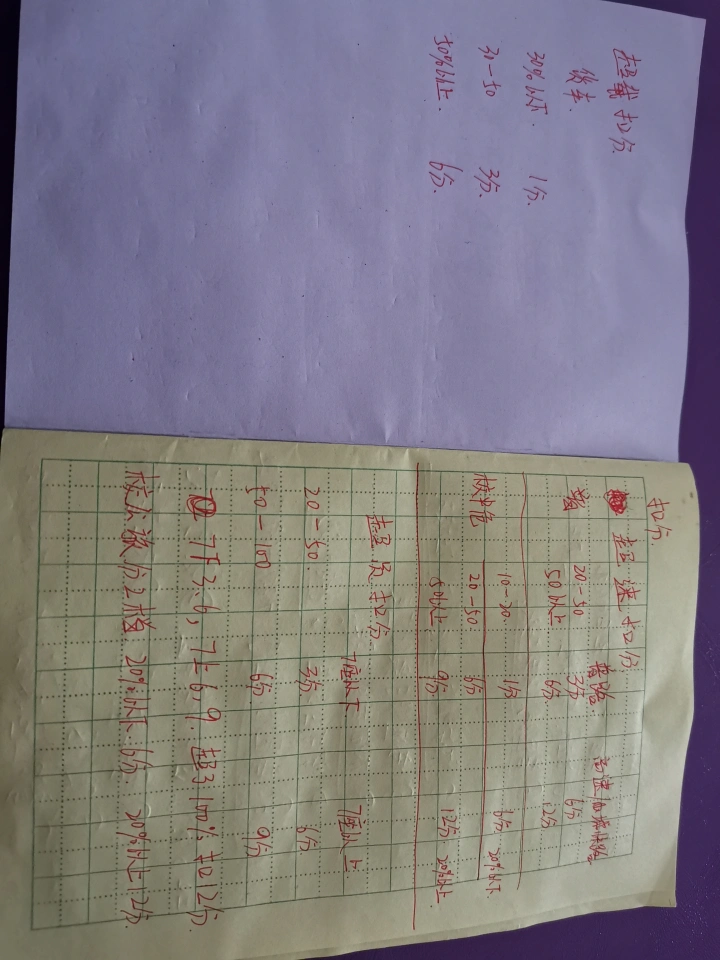 超载扣分.
30%以下. 1分.
30-50 3分.
50%以上. 6分.
扣分.
超速扣分
普路 高速城市快路
普 20-50 3分 6分
50以上 6分 12分
校中危 10-20 1分 6分 20%以下
20-50 6分
50以上 9分 12分 20%以上.
超员扣分
7座以下 7座以上
20-50. 3分 6分
50-100 6分 9分
7下3.6, 7上6,9. 超了100%扣12分.
校公旅分2档 20%以下6分. 20%以上12分.